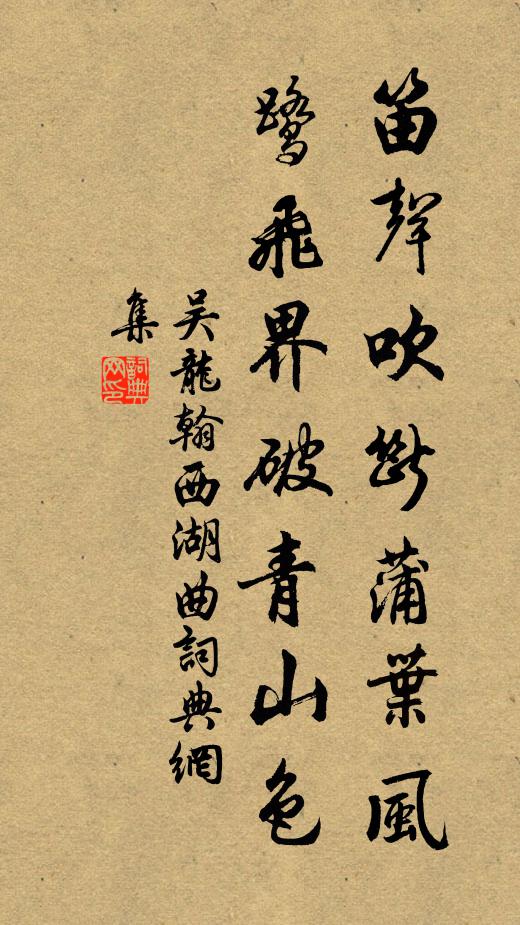 笛聲吹斷蒲葉風
鷺飛界破青山色
吴龍翰西湖曲詞典網
集
詞典网印